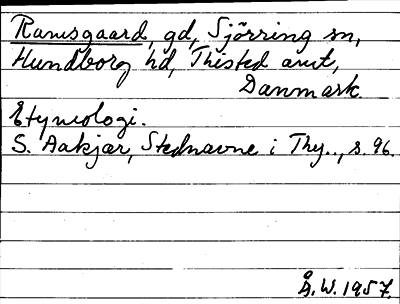 Ramsgaard, gd, Sjörring sn,
Hundborg hd, Thisted amt,
Danmark
Etymologi.
S. Aakjær, Stednavne i Thy.., s. 96.
Å.W. 1957.